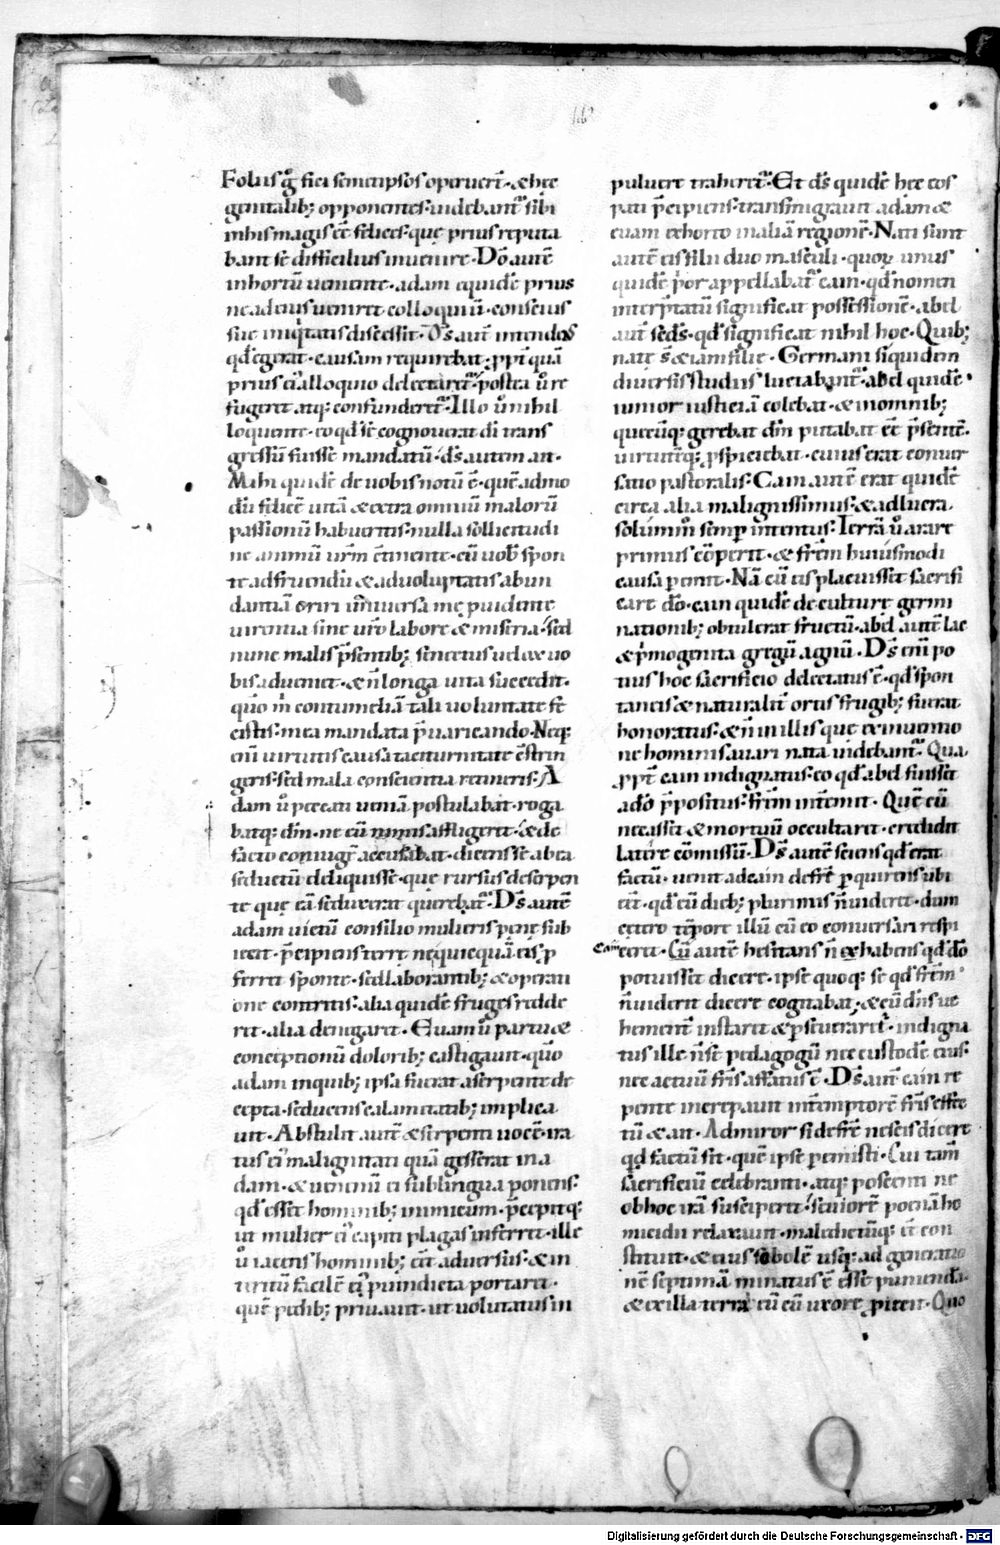 Folus g̊ fici semetipsos operuer̄t · & hęc
genitalib; opponentes · uidebant̃ sibi
inhis magis ēē felices · quę prius reputa
bant sē difficilius inuenire · Dō autē
inhortū ueniente · adam equidē prius
neadeius ueniret colloquiū · conscius
suę iniq̇tatis discessit · D̄s aut̄ intendens
qđ egerat · causam requirebat · ꝓpt̃ quā
prius ei' alloquio delectaret̃ · postea ů re
fugeret atq; confunderet̃ · Illo ů nihil
loquente · eo qđ sē cognouerat di trans
gressū fuisse mandatū · d̄s autem ait ·
Mihi quidē de uobis notū ē · quēadmo
dū felicē uitā & extra omniū malorū
passionū haberetis · nulla sollicitudi
ne animū urm̄ c̄tinente · cū uob̄ spon
te ad fruendū & ad uoluptatis abun
dantiā oriri uniuersa me puidente
uirentia sine ur̄o labore & miseria · sed
nunc malis p̄sentib; senectus uelox uo
bis adueniet · & n̄ longa uita succedet ·
quō m̄ contumeliā tali uoluntate fe
cistis · mea mandata p̄uaricando · Neq;
enī uirtutis causa taciturnitate c̄strin
geris · sed mala conscientia retineris · A
dam ů peccati ueniā postulabat · roga
batq; dn̄m · ne cū nimis affligeret · & de
facto coniugē accusabat · dicens se ab ea
seductū deliquisse · quę rursus deserpen
te quę eā seduxerat querebat̃ · D̄s autē
adam uictū consilio mulieris penę sub
iecit · p̄cipiens terrę neq̇equā eis ꝓ
ferre sponte · sed laborantib; & operati
one contritis · alia quidē fruges redde
ret · alia denegaret · Euam ů partu &
conceptionū dolorib; castigauit · quō
adam inquib; ipsa fuerat a serpente de
cepta · seducens calamitatib; implica
uit · Abstulit autē & serpenti uocē · ira
tus ei' malignitati quā gesserat in a
dam · & uenenū ei sub lingua ponens ·
qđ esset hominib; inimicum · p̄cepitq;
ut mulier ei' capiti plagas inferret · ille
ů iacens hominib; c̄ēt aduersus · & in
teritū facilē ei' p uindicta portaret ·
quē pedib; priuauit · ut uolutatus in
puluere traheret̃ · Et d̄s quidē hęc eos
pati p̄cipiens · transmigrauit adam &
euam ex horto in aliā regionē · Nati sunt
autē eis filii duo masculi · quoꝝ unus
quidē p̄or appellabat̃ cain · qđ nomen
interp̄tatū significat possessionē · abel
aut̄ scds · qđ significat nihil hoc · Quib;
natę s̄ & iam filię · Germani siquidem
diuersis studiis lętabant̃ · abel quidē
iunior iusticiā colebat · & in omnib;
quęcūq; gerebat dn̄m putabat ēē p̄sentē ·
uirtutēq; ꝓspiciebat · cuius erat conuer
satio pastoralis · Cain autē erat quidē
circa alia malignissimus · & ad lucra
solūmm̄ semꝑ intentus · Terrā ů arare
primus cōperit · & frēm huiusmodi
causa peremit · Nā cū eis placuisset sacrifi
care dō · cain quidē de culture germi
nationib; obtulerat fructū · abel autē lac
& p̄mogenita gregū agnū · D̄s enī po
tius hoc sacrificio delectatus ē · qđ spon
taneis & naturalit̄ ortis frugib; fuerat
honoratus · & n̄ in illis quę ex inuentio
ne hominis auari nata uidebant̃ · Qua
ꝓpt̃ cain indignatus · eo qđ abel fuisset
adō p̄positus · frēm int̄emit · Quē cū
necasset & mortuū occultaret · credidit
latēre cōmissū · D̄s autē sciens qđ erat
factū · uenit ad cain defrē ꝑquirens ubi
ēēt · qđ eū dieb; plurimis n̄ uideret · dum
cetero tēpore illū cū eo conuersari respi
Cain
ceret · Cū autē hesitans n̄ & habens qđ dō
potuisset dicere · ipse quoq; se qđ frēm
n̄ uiderit dicere cognabat, & cū dn̄s ue
hement̄ instaret & ꝑseueraret̃ · indigna
tus ille n̄ sē pedagogū nec custodē eius ·
nec actuū fris assatus ē · D̄s aut̄ cain re
pente increpauit int̄emptorē fris esse
tū & ait · Admiror si de frē nescis dicere
qđ factū sit · quē ipse pemisti · Cui tam̄
sacrificiū celebranti · atq; poscenti ne
ob hoc irā susciperet · seuiorē poenā ho
micidii relaxauit · maledictūq; eū con
stituit · & eius sobolē usq; ad generatio
nē septimā minatus ē esse puniendā ·
& ex illa terra cū eū uxore ꝓiecit · Quo
Digitalisierung gefördert durch die Deutsche Forschungsgemeinschaft - DFG